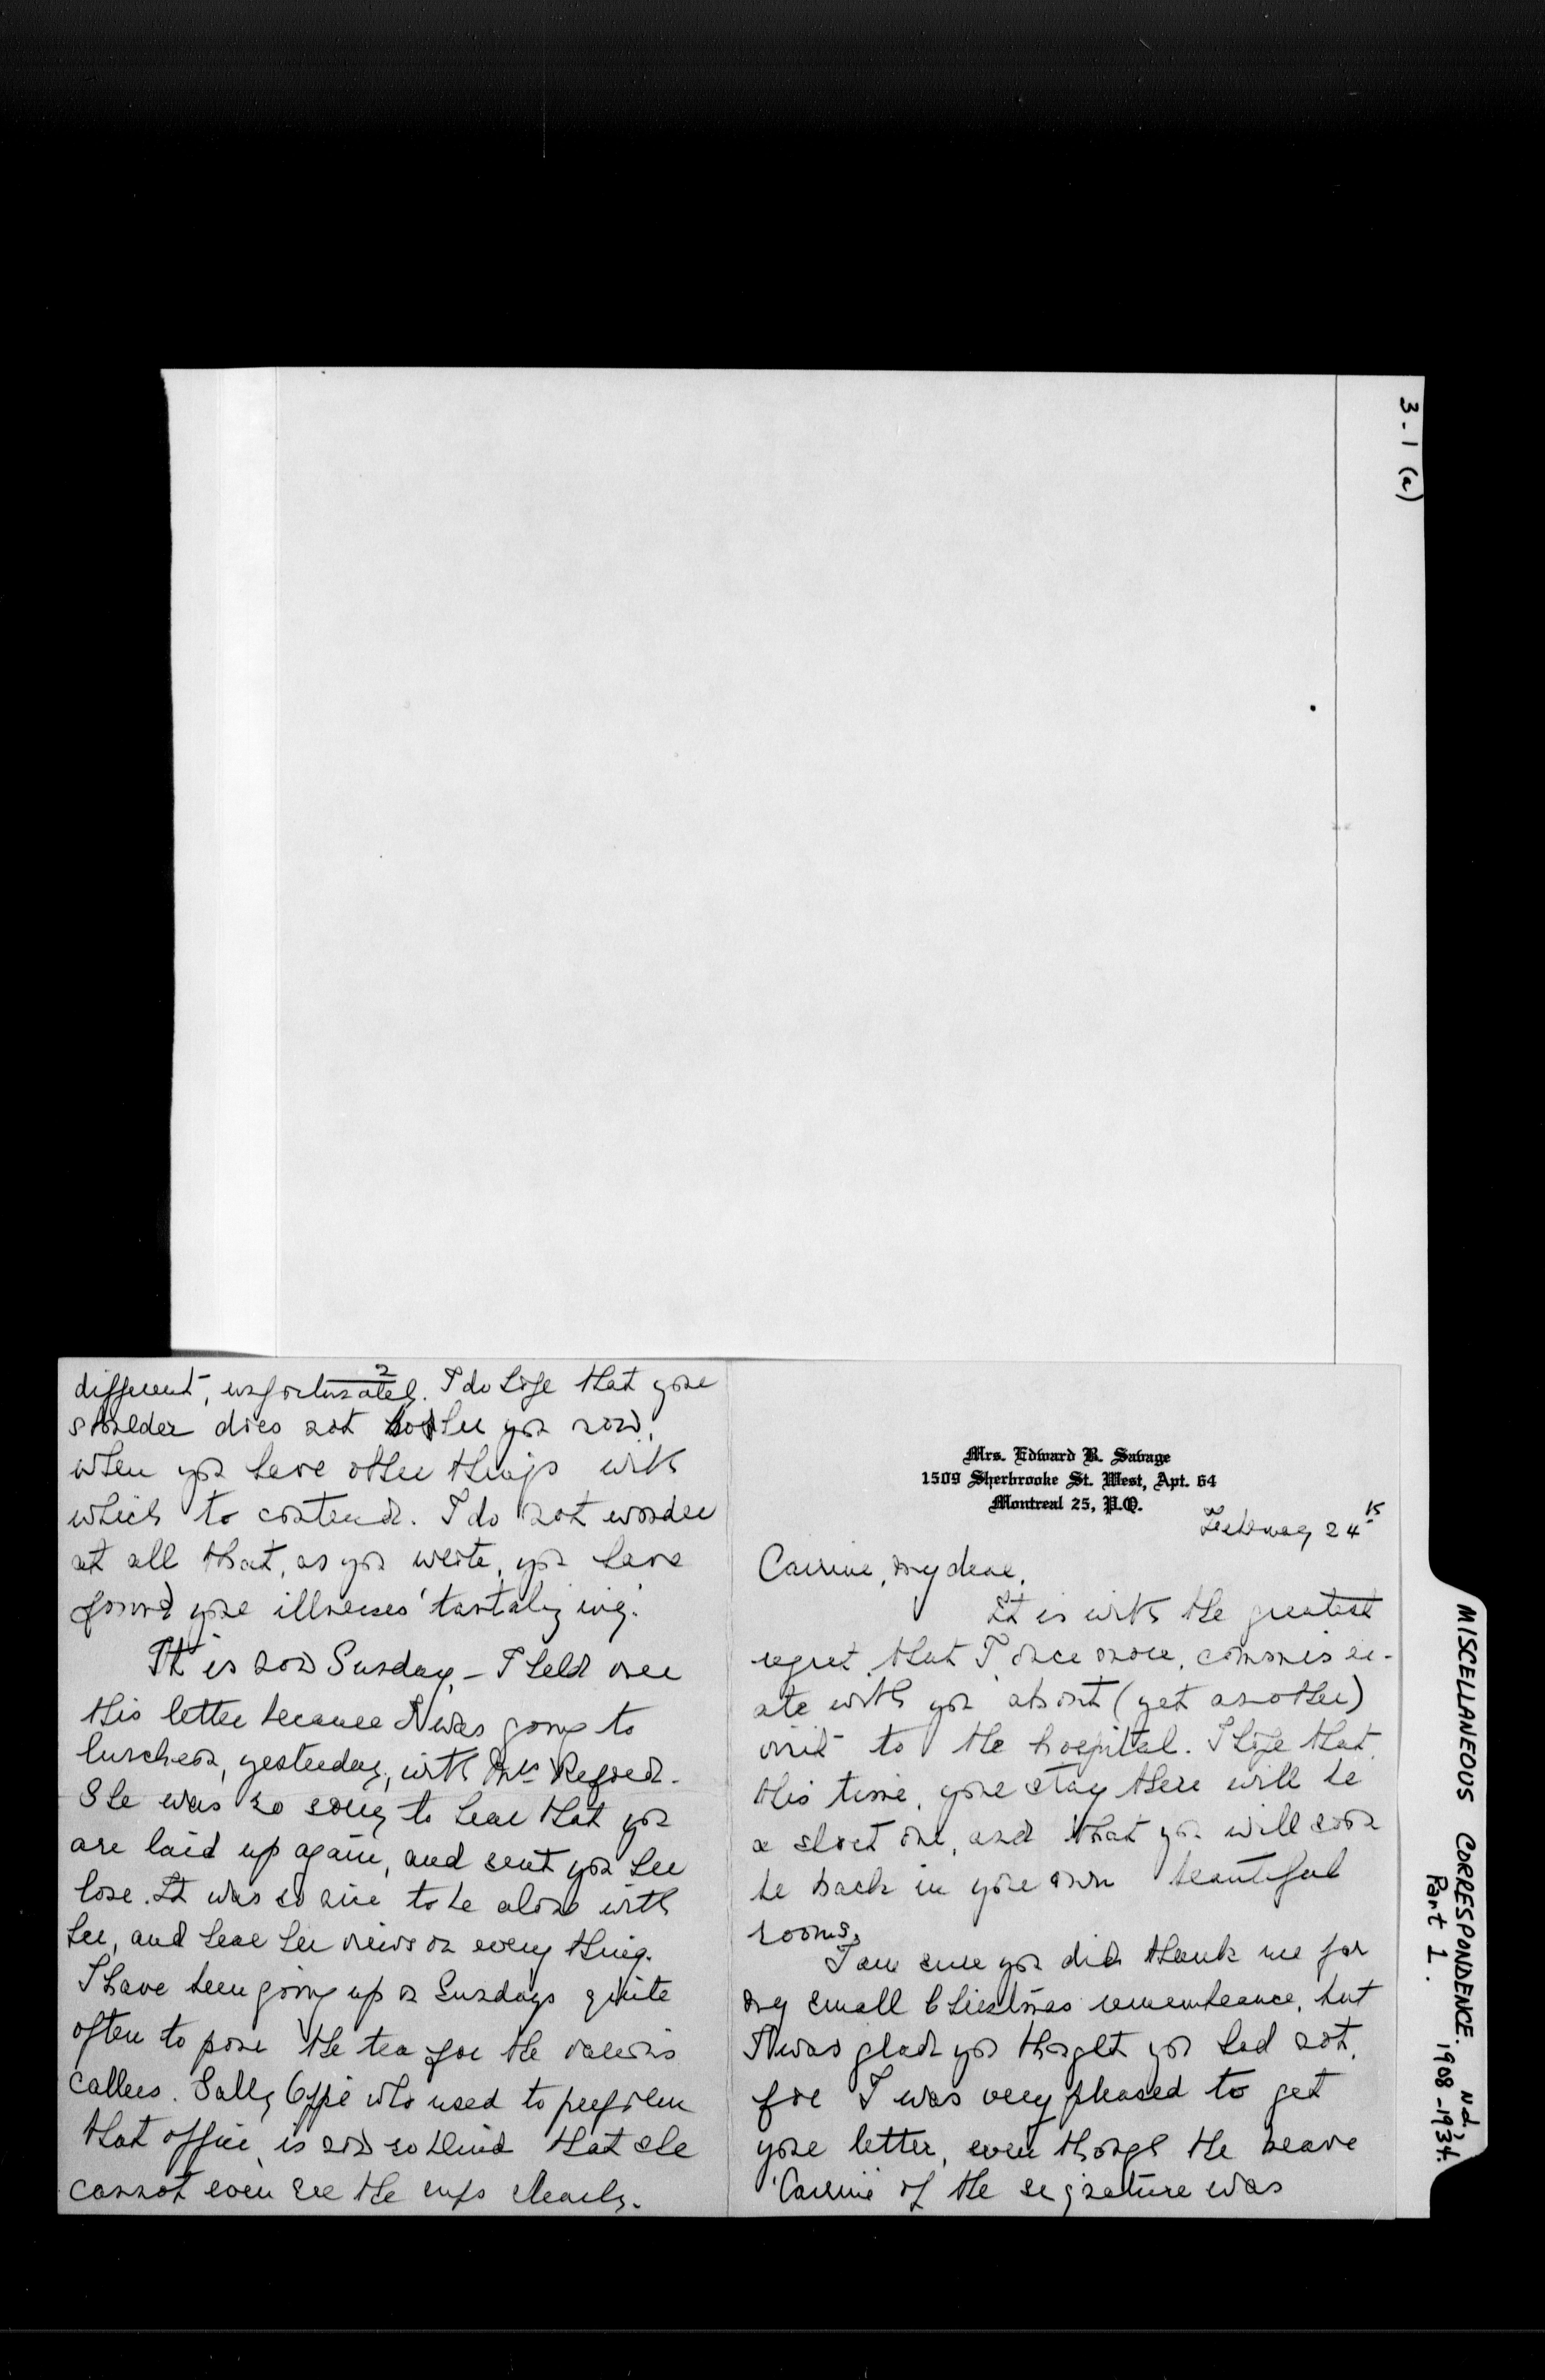 3-1 (a)
MISCELLANEOUS CORRESPONDENCE. N.d.,
Part 1. 1908-1934.
Mrs. Edward B. Savage
1509 Sherbrooke St. West, Apt. 64
Montreal 25, P.Q.
February 24th
Carrine, my dear,
It is with the greatest
regret that I once more, commiser-
ate with you about (yet another)
visit to the hospital. I hope that
this time, your stay there will be
a short one, and that you will soon
be back in your own beautiful
rooms.
I am sure you did thank me for
my small Christmas remembrance, but
I was glad you thought you had not,
for I was very pleased to get
your letter, even though the
of the signature was
2
different, unfortunately. I do hope that your
shoulder does not bother you now,
when you have other things with
which to contend. I do not wonder
at all that, as you write, you have
found your illnesses 'tantalyzing'.
It is now Sunday, - I held over
this letter because I was going to
luncheon, yesterday, with Mrs Redpath.
She was so sorry to hear that you
are laid up again, and sent you her
love. It was so nice to be alone with
her, and hear her views on every thing.
I have been going up on Sundays quite
often to pour the tea for the various
callers. Sally who used to perform
that office, is now so blind that she
cannot even see the cups clearly.